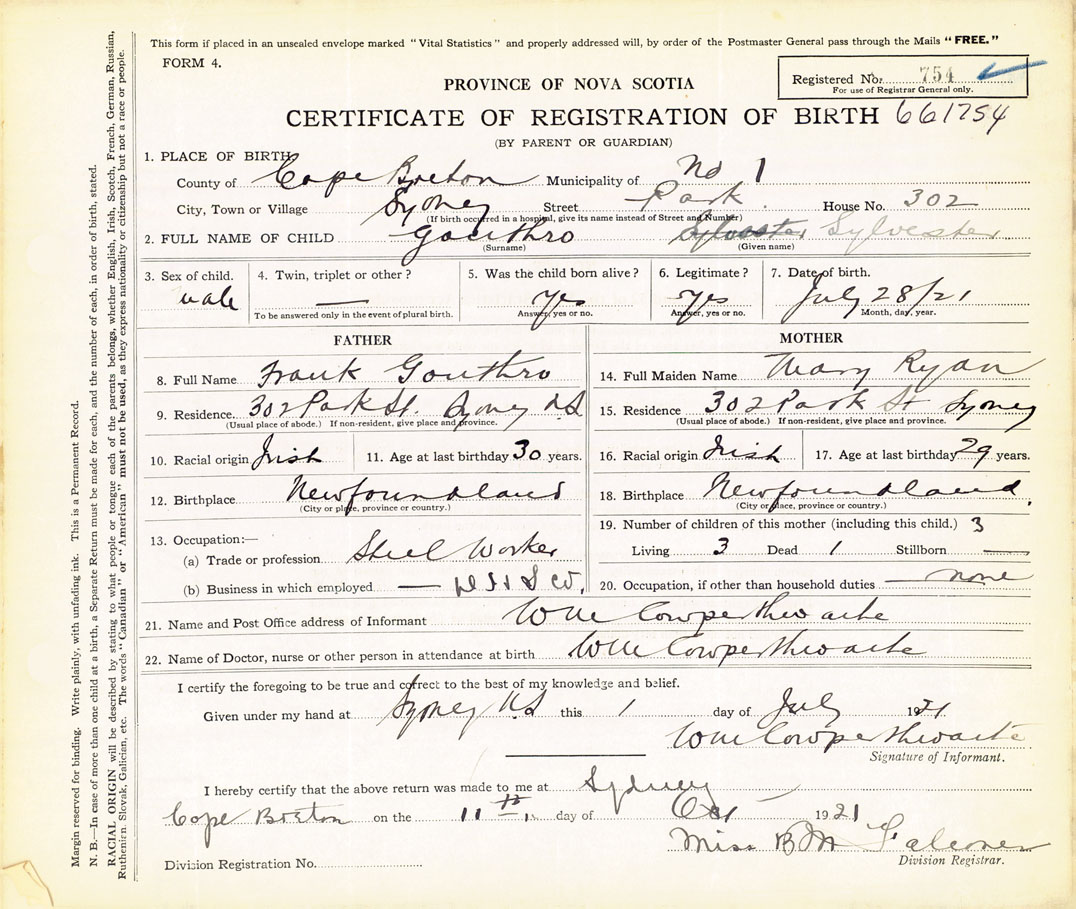 This form if placed in an unsealed envelope marked "Vital Statistics" and properly addressed will, by order of the Postmaster General pass through the Mails "FREE."
FORM 4.
Registered No. 754
For use of Registrar General only.
PROVINCE OF NOVA SCOTIA
CERTIFICATE OF REGISTRATION OF BIRTH 661754
(BY PARENT OR GUARDIAN)
1. PLACE OF BIRTH
County of Cape Breton Municipality of No 1
City, Town or Village Sydney Street Park House No. 302
(If birth occurred in a hospital, give its name instead of Street and Number)
2. FULL NAME OF CHILD Gouthro Sylvester Sylvester
(Surname) (Given name)
3. Sex of child. 4. Twin, triplet or other? 5. Was the child born alive? 6. Legitimate? 7. Date of birth.
male — yes yes July 28/21
To be answered only in the event of plural birth. Answer, yes or no. Answer, yes or no. Month, day, year.
FATHER
8. Full Name Frank Gouthro
9. Residence 302 Park St. Sydney N.S.
(Usual place of abode.) If non-resident, give place and province.
10. Racial origin Irish 11. Age at last birthday 30 years.
12. Birthplace Newfoundland
(City or place, province or country.)
13. Occupation:—
(a) Trade or profession Steel Worker
(b) Business in which employed —
MOTHER
14. Full Maiden Name Mary Ryan
15. Residence 302 Park St Sydney
(Usual place of abode.) If non-resident, give place and province.
16. Racial origin Irish 17. Age at last birthday 29 years.
18. Birthplace Newfoundland.
(City or place, province or country.)
19. Number of children of this mother (including this child.) 3
Living 3 Dead 1 Stillborn —
20. Occupation, if other than household duties — none
21. Name and Post Office address of Informant Wm Cowperthwaite
22. Name of Doctor, nurse or other person in attendance at birth Wm Cowperthwaite
I certify the foregoing to be true and correct to the best of my knowledge and belief.
Given under my hand at Sydney N.S this 1 day of July 1921
Wm Cowperthwaite
Signature of Informant.
I hereby certify that the above return was made to me at Sydney
Cape Breton on the 11th day of Oct 1921
Miss B M Falconer
Division Registrar.
Division Registration No.
Margin reserved for binding. Write plainly, with unfading ink. This is a Permanent Record.
N. B.—In case of more than one child at a birth, a Separate Return must be made for each, and the number of each, in order of birth, stated.
RACIAL ORIGIN will be described by stating to what people or tongue each of the parents belongs, whether English, Irish, Scotch, French, German, Russian,
Ruthenian, Slovak, Galician, etc. The words "Canadian" or "American" must not be used, as they express nationality or citizenship but not a race or people.